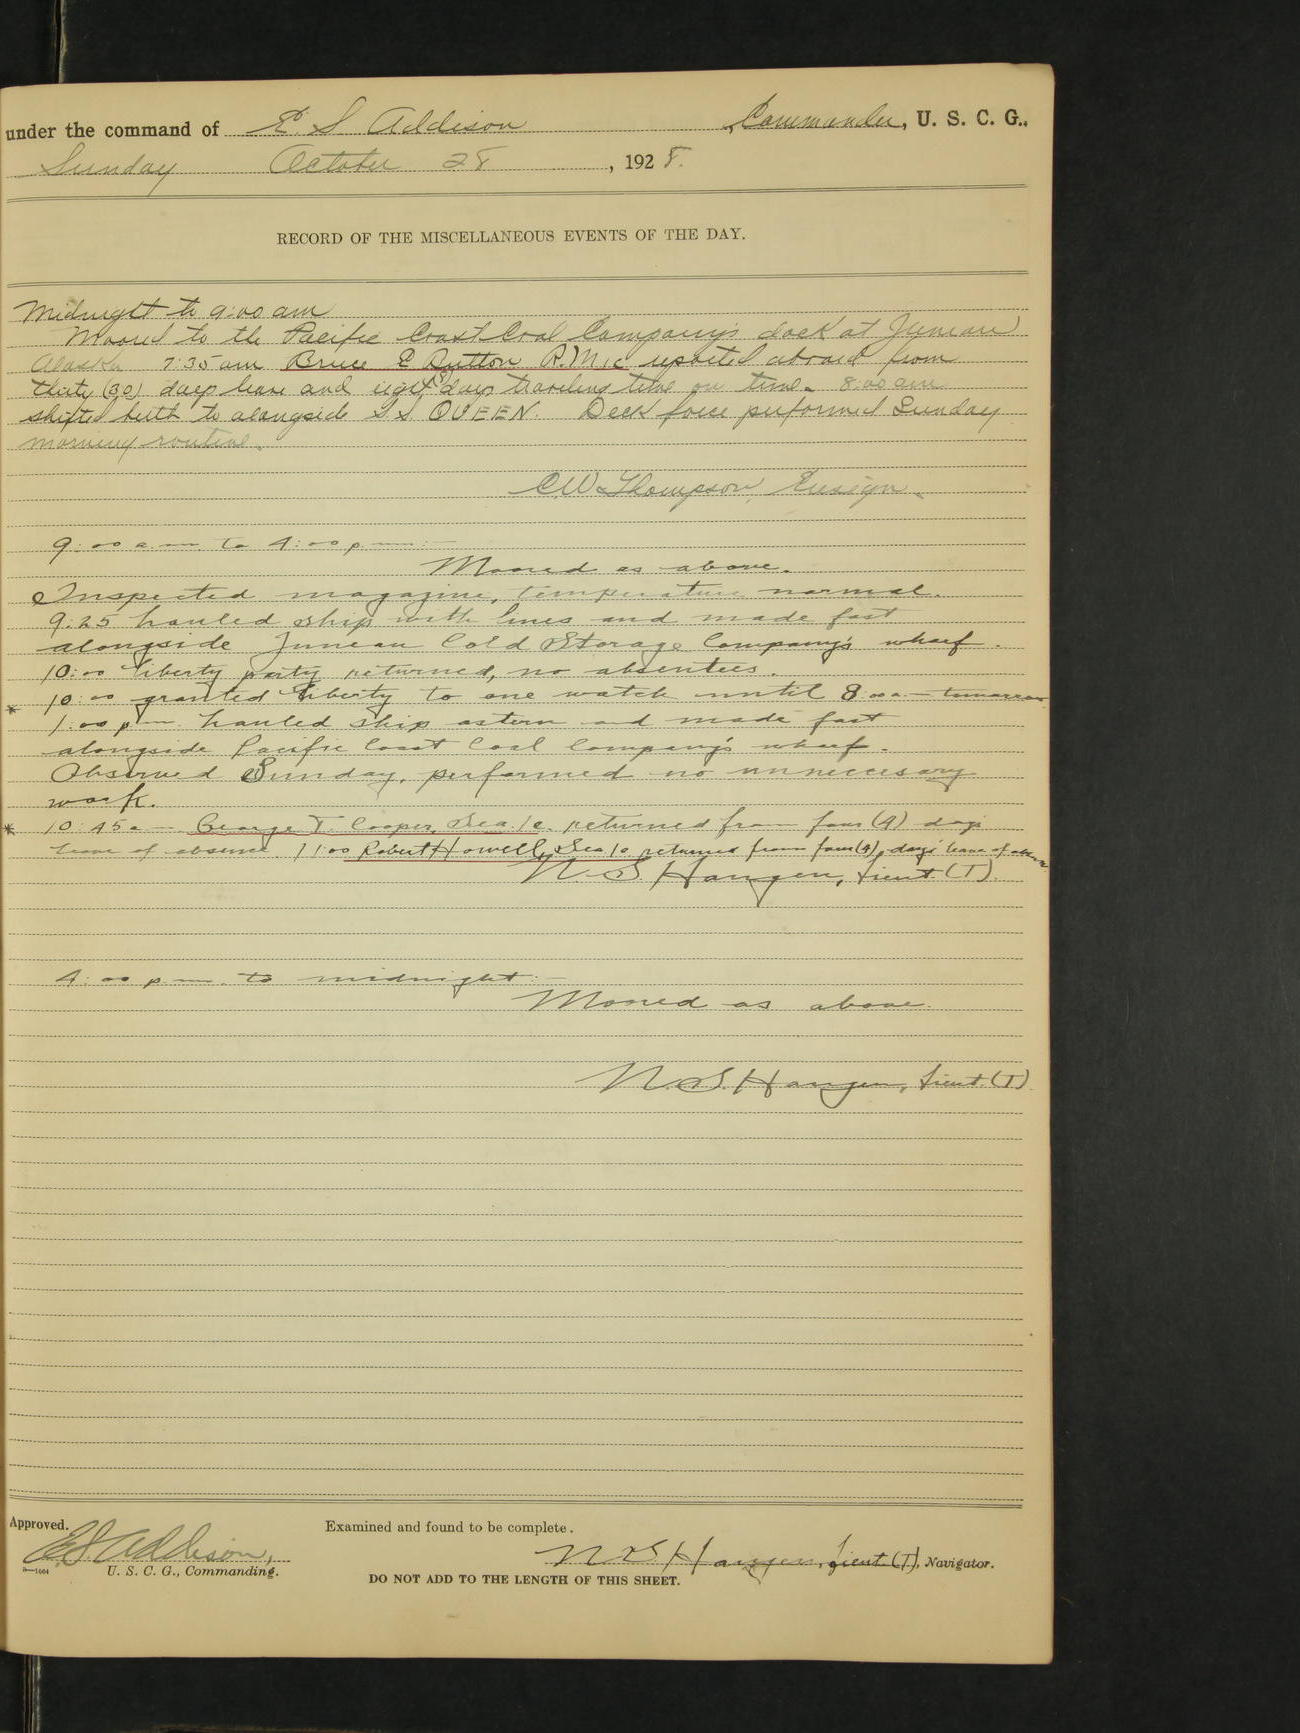 under the command of E. S. Addison Commander, U. S. C. G.,
Sunday October 28, 1928.
RECORD OF THE MISCELLANEOUS EVENTS OF THE DAY.
Midnight to 9:00 am
Moored to the Pacific Coast Coal Company's dock at Juneau
Alaska 7:35 am Bruce E Dutton R.M.1c reported aboard from
thirty (30) days leave and eight (8) days traveling time on time. 8:00 am
shifted birth to alongside S.S. QUEEN. Deck force performed Sunday
morning routine.
C.W. Thompson, Ensign.
9:00 a.m. to 4:00 p.m.:-
Moored as above.
Inspected magazine, temperature normal.
9:25 hauled ship with lines and made fast
alongside Juneau Cold Storage Company's wharf.
10:00 liberty party returned, no absentees.
* 10:00 granted liberty to one watch until 8:00 a.m. tomorrow
1:00 p.m. hauled ship astern and made fast
alongside Pacific Coast Coal Company's wharf.
Observed Sunday, performed no unneccesary
work.
* 10:45 a.m. George T. Cooper, Sea.1c. returned from four (4) days
leave of absence. 11:00 Robert Howell, Sea.1c. returned from four (4) days' leave of absence
N. S. Haugen, Lieut. (T).
4:00 p.m. to midnight:-
Moored as above.
N. S. Haugen, Lieut. (T)
Approved.
Examined and found to be complete.
E S Addison,
N. S. Haugen, Lieut. (T), Navigator.
U. S. C. G., Commanding.
DO NOT ADD TO THE LENGTH OF THIS SHEET.